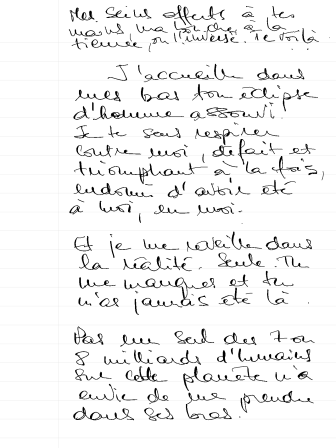 Mes seins offerts à tes
mains, ma bouche à la
tienne, ou l'inverse. Te voilà.
J'accueille dans
mes bras ton éclipse
d'homme assouvi.
Je te sens respirer
contre moi, défait et
triomphant à la fois,
endormi d'avoir été
à moi, en moi.
Et je me réveille dans
la réalité. Seule. Tu
me manques et tu
n'as jamais été là.
Pas un seul des 7 ou
8 milliards d'humains
sur cette planète n'a
envie de me prendre
dans ses bras.